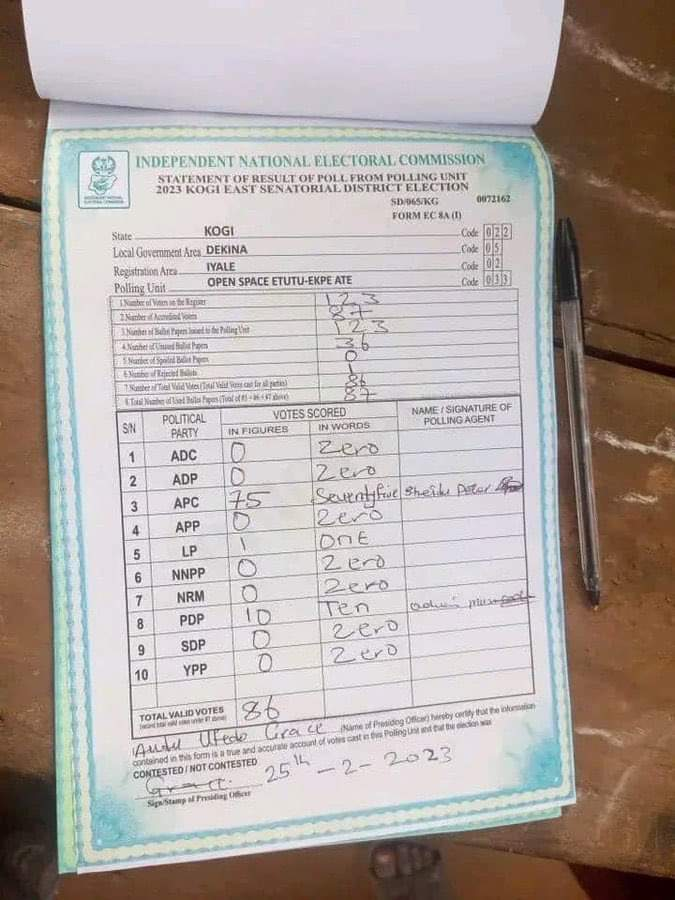 INDEPENDENT NATIONAL ELECTORAL COMMISSION
STATEMENT OF RESULT OF POLL FROM POLLING UNIT
2023 KOGI EAST SENATORIAL DISTRICT ELECTION
SD/065/KG 0072162
FORM EC 8A (I)
State KOGI Code 022
Local Government Area DEKINA Code 05
Registration Area IYALE Code 02
Polling Unit OPEN SPACE ETUTU-EKPE ATE Code 033
1.Number of Voters on the Register 123
2.Number of Accredited Voters 87
3.Number of Ballot Papers Issued to the Polling Unit 123
4.Number of Unused Ballot Papers 36
5.Number of Spoiled Ballot Papers 0
6.Number of Rejected Ballots 1
7.Number of Total Valid Votes (Total Valid Votes cast for all parties) 86
8.Total Number of Used Ballot Papers (Total of #5 + #6 + #7 above) 87
S/N POLITICAL PARTY VOTES SCORED NAME / SIGNATURE OF POLLING AGENT
IN FIGURES IN WORDS
1 ADC 0 Zero
2 ADP 0 Zero
3 APC 75 Seventyfive Sheidu Peter
4 APP 0 Zero
5 LP 1 ONE
6 NNPP 0 Zero
7 NRM 0 Zero
8 PDP 10 Ten
9 SDP 0 Zero
10 YPP 0 Zero
TOTAL VALID VOTES 86
Ufedo Grace (Name of Presiding Officer) hereby certify that the information
contained in this form is a true and accurate account of votes cast in this Polling Unit and that the election was
CONTESTED / NOT CONTESTED
25th -2-2023
Sign/Stamp of Presiding Officer